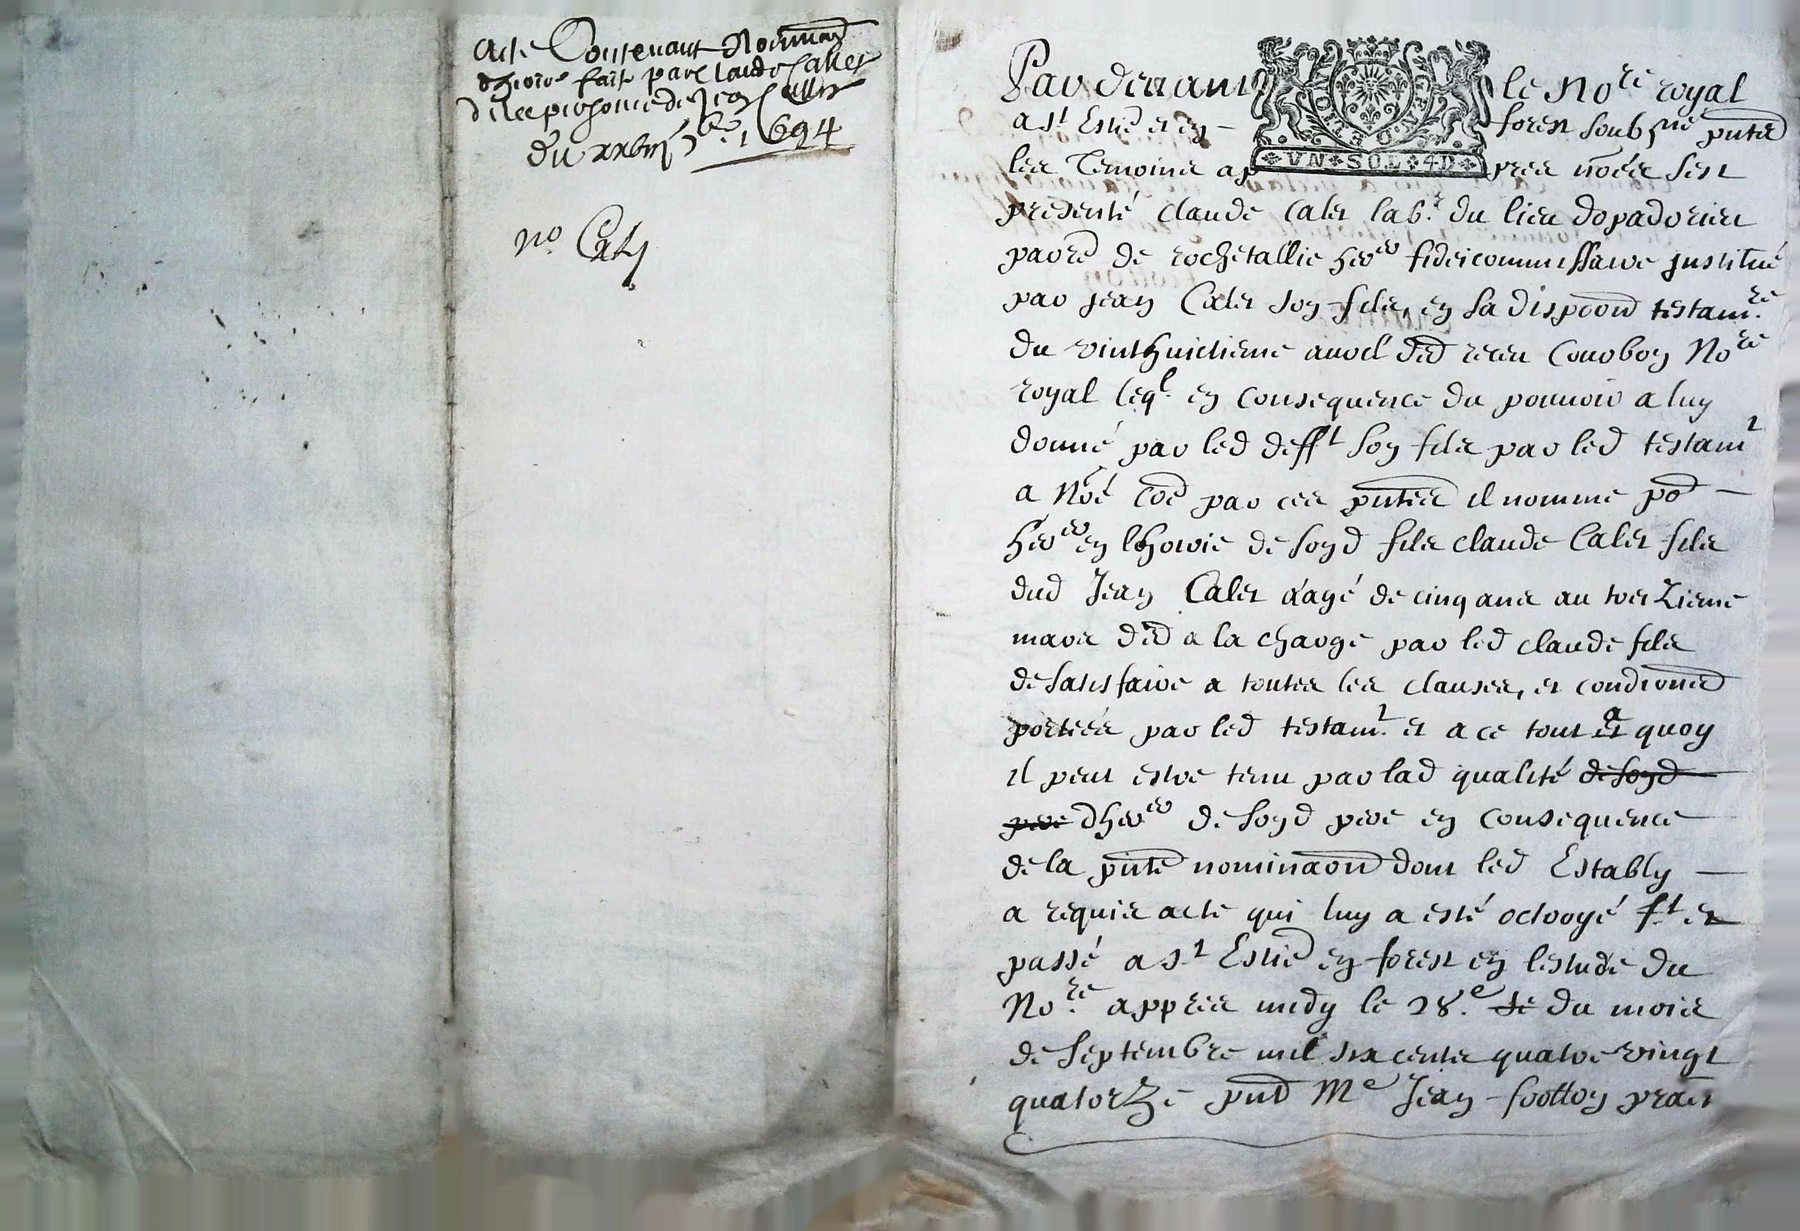 Acte Contenant Nominaōn
dheoire fait par Claude Calley
de la personne de Jean Calley
du xxviij 7bre 1694
no. Caly
Par devant le Nore royal
a st Estie et en forest soubsne pntēs
les temoins apres noēes sest
presenté claude Calet labr. du lieu dopadorieu
parrē de rochetallie herer fideicommissaire justitué
par jean Calet son fils, en sa dispōon testamre
du vinthuictieme avoil dēd receu Couobon Nore
royal leql. en consequence du pouuoir a luy
donné par led defft son fils par led testamt
a Noé cōe par ces pntēs il nomme pō
herer en lhoirie de sond fils claude Calet fils
dud Jean Calet aâgé de cinq ans au treizieme
mars dēd a la charge par led claude fils
de satisfaire a toutes les clauses, et condiōnes
portées par led testamt. et a ce tout et a quoy
il peut estre tenu par lad qualité de sond
pere dherer de sond pere en consequence
de la pnte nominaōn dont led Estably
a requis acte qui luy a esté octroyé ft et
passé a st Estie en forest en lestude du
Nore appres midy le 28e. de du mois
de septembre mil six cents quatre vingt
quatorze pnt Me Jean frotton pratn
UN SOL 4D